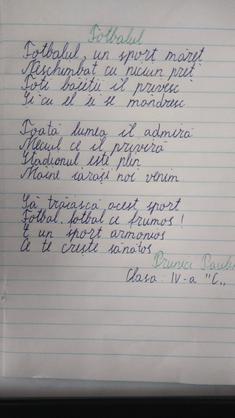 Fotbalul
Fotbalul, un sport măreț
Neschimbat cu niciun preț
Toți băieții îl privesc
Și cu el ei se mândresc
Toată lumea îl admiră
Meciul ce îl privira
Stadionul este plin
Mâine iarăși noi venim
Să trăiască acest sport
Fotbal, fotbal ce frumos!
E un sport armonios
Ce te crește sănătos
Clasa: IV-a "C"